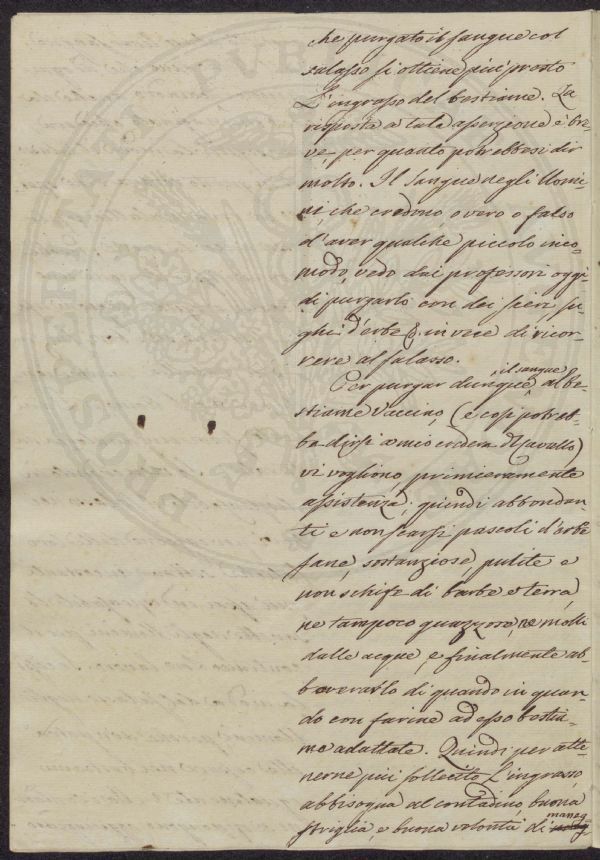 che purgato il sangue col
salasso si ottiene piú presto
L'ingrasso del bestiame. La
risposta a tale asserzione è bre-
ve per quanto potrebbesi dir
molto. Il sangue negli Uomi-
ni, che credono o vero o falso
d'aver qualche piccolo inco-
modo, vedo dai professori oggi-
di purgarlo con dei sieri su-
ghi d'erbe &. in vece di ricor-
rere al salasso.
Per purgar dunque, il sangue, al be-
stiame vaccino, (e cosi potreb-
be dirsi a mio credere del cavallo)
vi vogliono primieramente
assistenza, quindi abbondan-
ti e non scarsi pascoli d'erbe
sane, sostanziose, pulite e
non schife di barbe e terra,
ne tampoco guazzose, ne molli
dalle acque, e finalmente ab-
beverarlo di quando in quan-
do con farine ad esso bestia-
me adattate. Quindi per otte-
nerne piú sollecito L'ingrasso,
abbisogna al contadino, buona
striglia, e buona volontà di maneg-
PROSPERITA
PVB